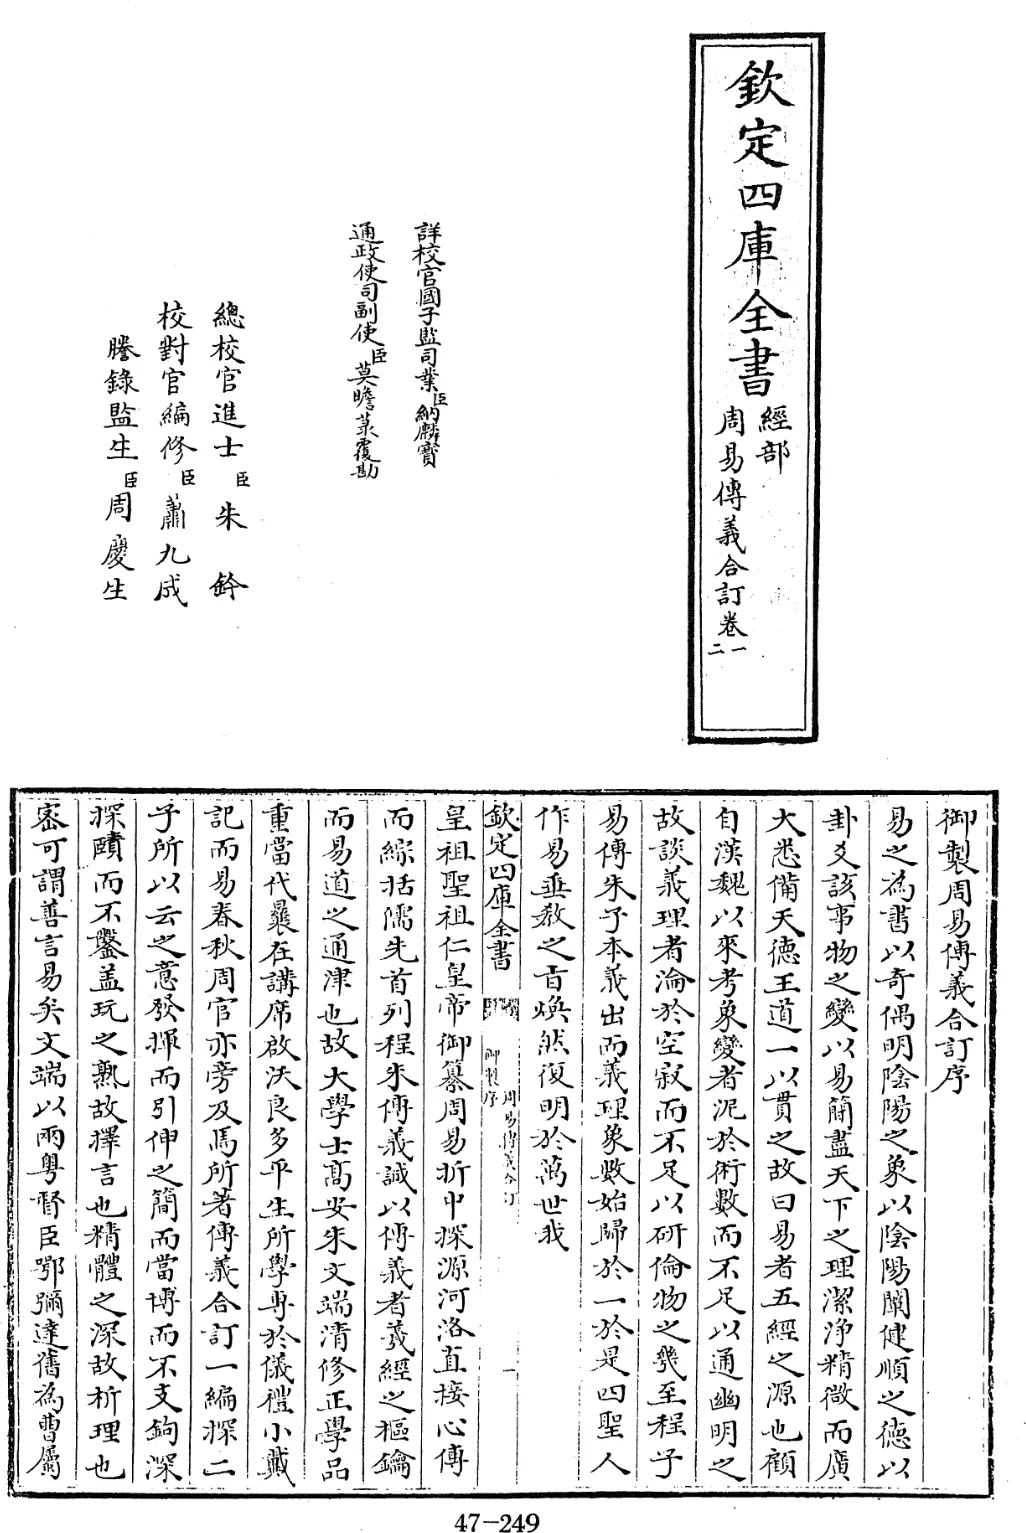 欽定四庫全書
經部
周易傳義合訂卷一
二
詳校官國子監司業臣納麟寶
通政使司副使臣莫瞻菉覆勘
總校官進士臣朱鈐
校對官編修臣蕭九成
謄錄監生臣周慶生
御製周易傳義合訂序
易之為書以奇偶明陰陽之象以陰陽闡健順之德以
卦爻該事物之變以易簡盡天下之理潔净精微而廣
大悉備天德王道一以貫之故曰易者五經之源也顧
自漢魏以來考象變者泥於術數而不足以通幽明之
故談義理者淪於空寂而不足以研倫物之幾至程子
易傳朱子本義出而義理象數始歸於一於是四聖人
作易垂教之旨煥然復明於萬世我
欽定四庫全書
周易傳義合訂
御製序
一
皇祖聖祖仁皇帝御纂周易折中探源河洛直接心傳
而綜括儒先首列程朱傳義誠以傳義者羲經之樞鑰
而易道之通津也故大學士高安朱文端清修正學品
重當代曩在講席啟沃良多平生所學專於儀禮小戴
記而易春秋周官亦旁及焉所著傳義合訂一編探二
子所以云之意發揮而引伸之簡而當博而不支鉤深
探賾而不鑿盖玩之熟故擇言也精體之深故析理也
密可謂善言易矣文端以兩粵督臣鄂彌達舊為曹屬
47-249